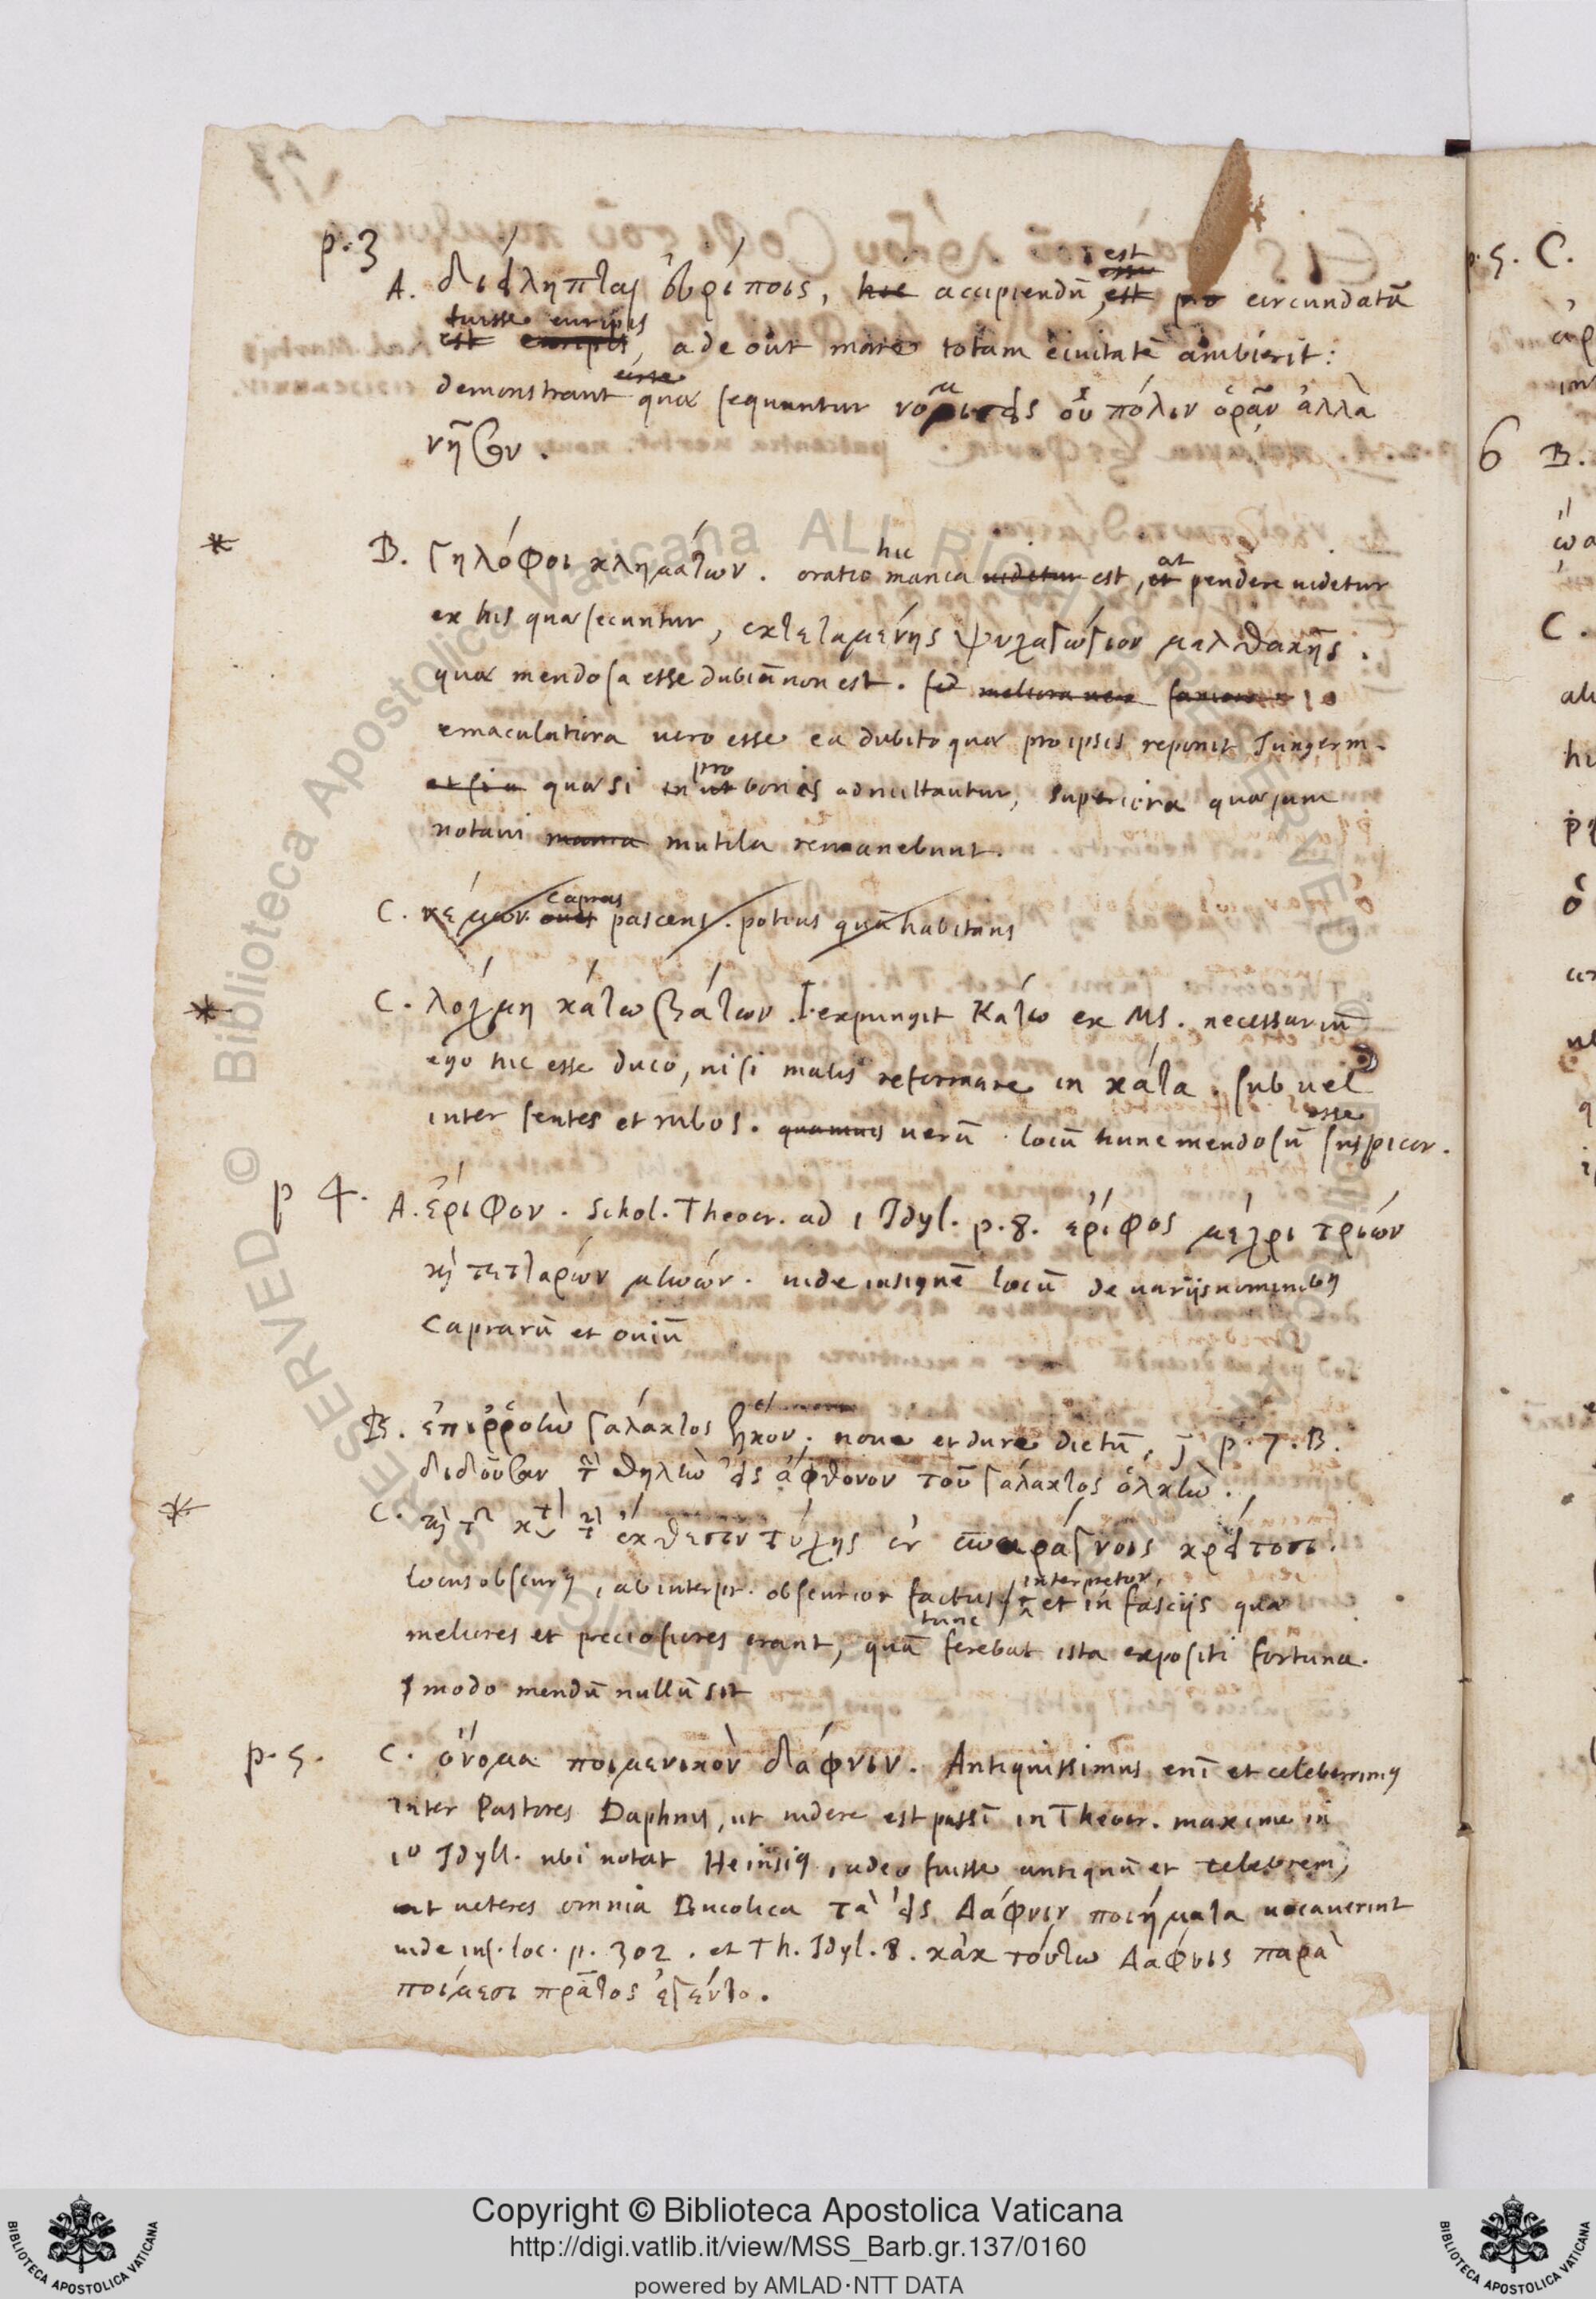 p. 3
A. διείληπται εὐρίποις, hic accipiendū, est est pro circundatā
fuisse euripis
est euripis, adeo ut mare totam ciuitatē ambierit:
demonstrant quæ sequuntur νομίσεις οὐ πόλιν ὁρᾶν ἀλλὰ
νῆσον.
* B. γηλόφοι κλημάτων. oratio hic manca uidetur est, et at pendere uidetur
ex his quæ secuntur, ἐκτεταμένης ψυχαγώγιον μαλθακῆς.
quæ mendosa esse dubiū non est. sed meliora
emaculatiora uero esse ea dubito quæ pro ipsis reponit Jungerm.
quæ si pro bonis admittantur, superiora quæ jam
notaui manca mutila remanebunt.
C. νέμων oues capras pascens. potius quā habitans
* C. λόχμη κάτω βάτων. J. expungit Κάτω ex MS. necessariū
ego hic esse duco, nisi malis reformare in κάτα. sub uel
inter sentes et rubos. quamuis uerū locū hunc mendosū esse suspicor.
p 4. A. ἔριφον. Schol. Theocr. ad 1 Idyl. p. 8. ἔριφος μέχρι τριῶν
καὶ τεττάρων μηνῶν. uide insignē locū de uarijs nominibus
Caprarū et ouiū
B. ἐπιῤῥοὴν γάλακτος ἧκον; noue et dure dictū, J p. 7. B.
διδοῦσαν τὴν θηλὴν εἰς ἄφθονον τοῦ γάλακτος ὁλκήν.
* C. καὶ τῆς κατὰ τὴν ἔκθεσιν τύχης ἐν σπαργάνοις κρείττοσι.
locus obscurus, ab interpr. obscurior factus interpretor, et in fascijs quæ
meliores et preciosiores erant, quā tunc ferebat ista expositi fortuna.
modo mendū nullū sit
p. 5. C. ὄνομα ποιμενικὸν δάφνιν. Antiquissimus enī et celeberrimus
inter Pastores Daphnis, ut uidere est passī in Theocr. maxime in
1º Idyll. ubi notat Heinsius, adeo fuisse antiquū et celebrem,
ut ueteres omnia Bucolica τὰ εἰς Δάφνιν ποιήματα uocauerint
uide ins. loc. p. 302. et Th. Idyl. 8. κἀκ τούτω Δάφνις παρὰ
ποιμέσι πρᾶτος ἔγεντο.
p. 5. C.
6 B.
C.
Copyright © Biblioteca Apostolica Vaticana
http://digi.vatlib.it/view/MSS_Barb.gr.137/0160
powered by AMLAD·NTT DATA
BIBLIOTECA APOSTOLICA VATICANA
BIBLIOTECA APOSTOLICA VATICANA